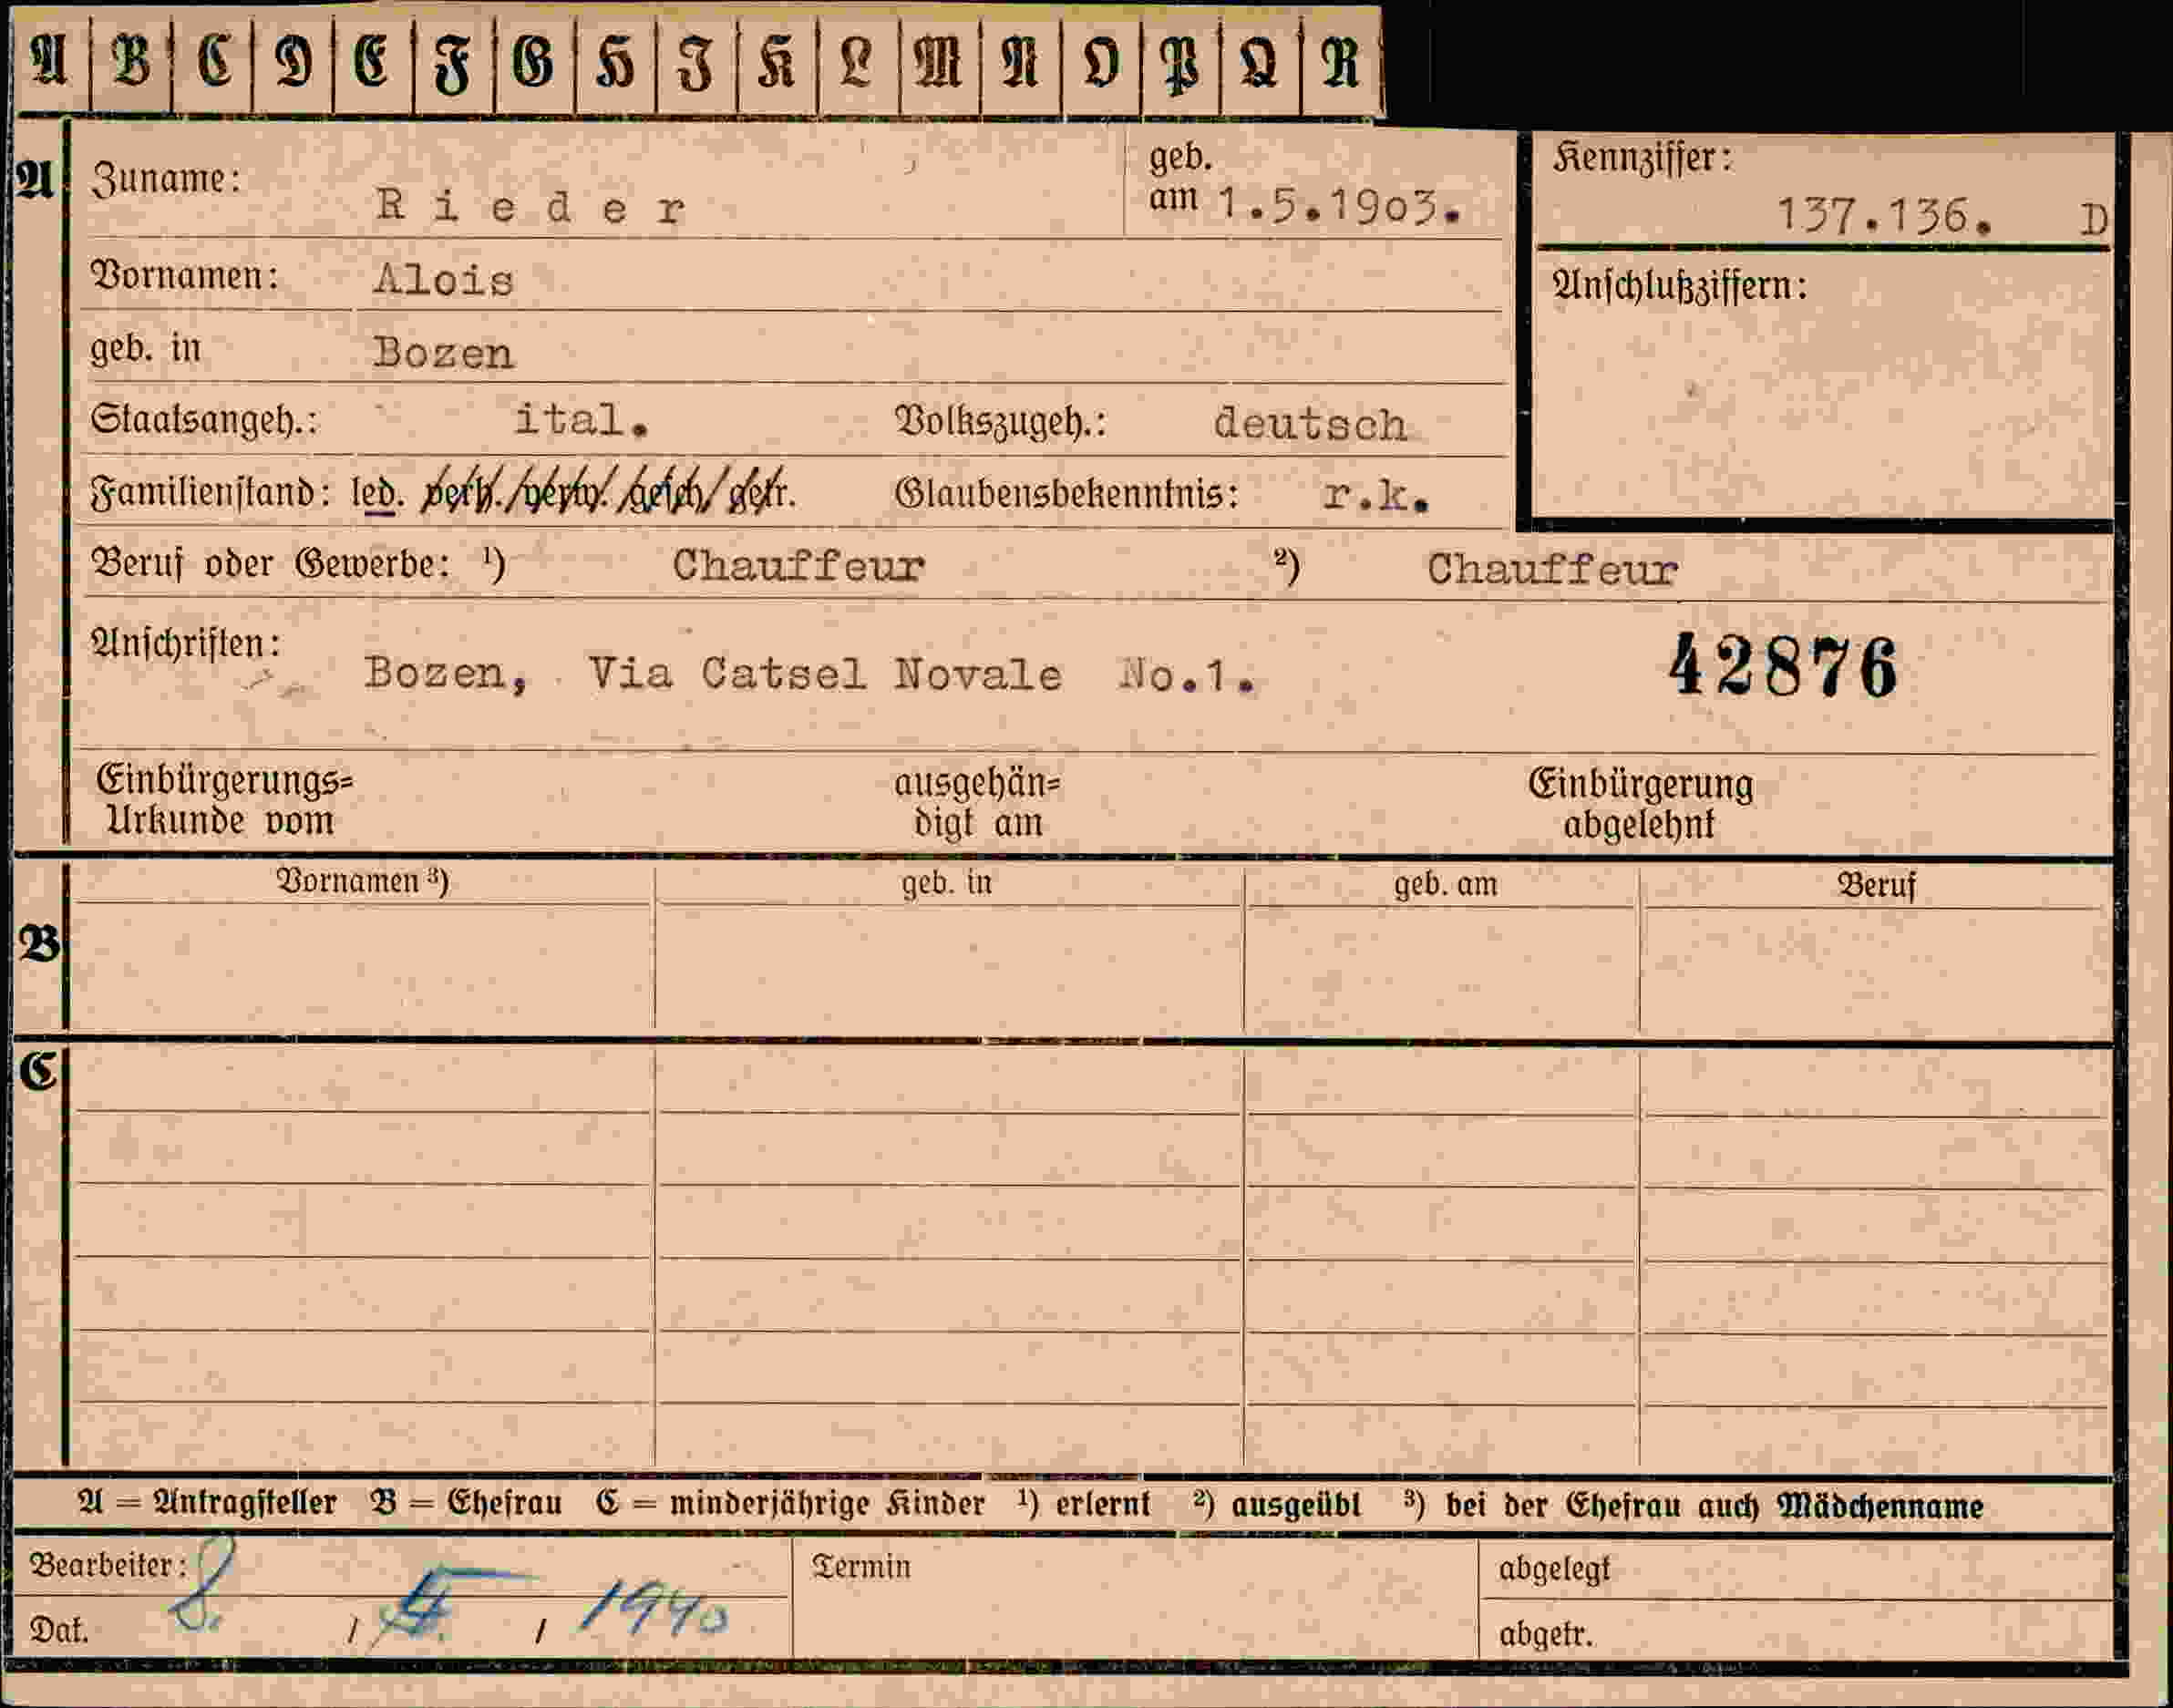 A B C D E F G H I K L M N O P Q R
A Zuname: Rieder geb. am 1.5.1903. Kennziffer: 137.136. D
Vornamen: Alois Anschlußziffern:
geb. in Bozen
Staatsangeh.: ital. Volkszugeh.: deutsch
Familienstand: led. verh./verw./gesch/getr. Glaubensbekenntnis: r.k.
Beruf oder Gewerbe: ¹) Chauffeur ²) Chauffeur
Anschriften: Bozen, Via Catsel Novale No.1. 42876
Einbürgerungs= ausgehän= Einbürgerung
Urkunde vom digt am abgelehnt
Vornamen ³) geb. in geb. am Beruf
B
C
A = Antragsteller B = Ehefrau C = minderjährige Kinder ¹) erlernt ²) ausgeübt ³) bei der Ehefrau auch Mädchenname
Bearbeiter: Termin abgelegt
Dat. 8. / / 1940 abgetr.